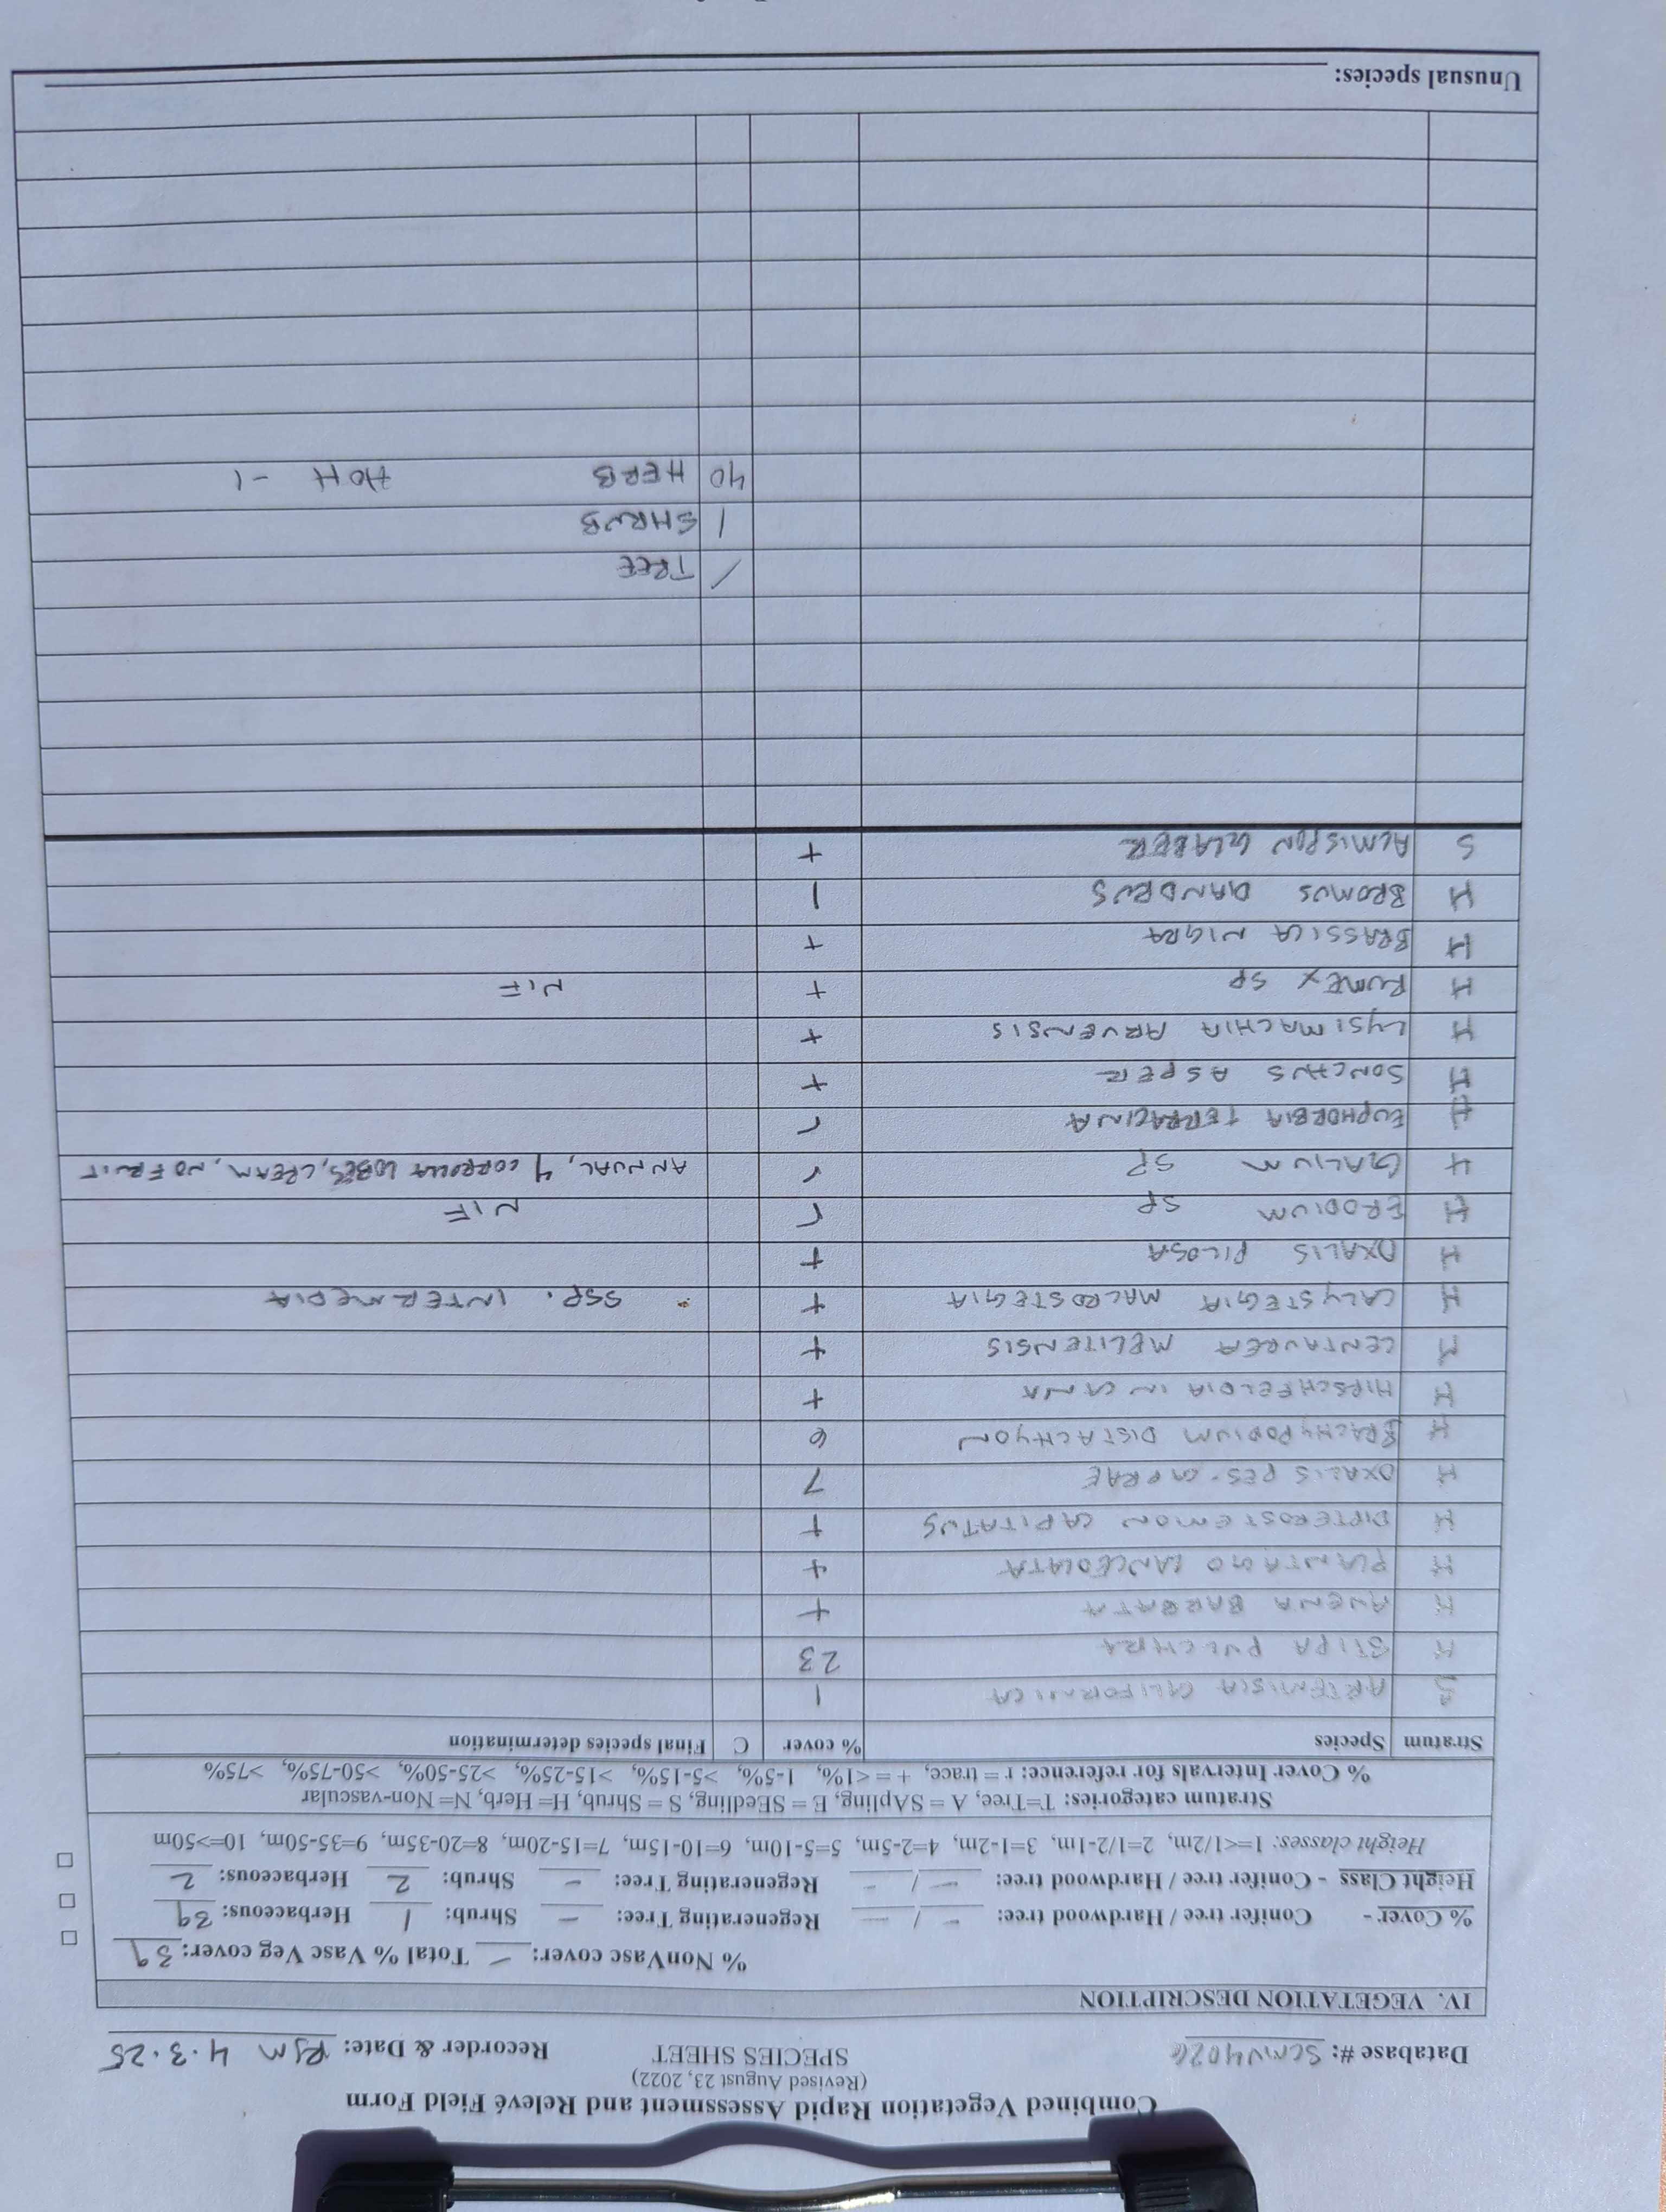 Combined Vegetation Rapid Assessment and Relevé Field Form
(Revised August 23, 2022)
Database #: SCMV4026 SPECIES SHEET Recorder & Date: RJM 4.3.25
IV. VEGETATION DESCRIPTION
% NonVasc cover: – Total % Vasc Veg cover: 39
% Cover - Conifer tree / Hardwood tree: – / – Regenerating Tree: – Shrub: 1 Herbaceous: 39
Height Class - Conifer tree / Hardwood tree: – / – Regenerating Tree: – Shrub: 2 Herbaceous: 2
Height classes: 1=<1/2m, 2=1/2-1m, 3=1-2m, 4=2-5m, 5=5-10m, 6=10-15m, 7=15-20m, 8=20-35m, 9=35-50m, 10=>50m
Stratum categories: T=Tree, A = SApling, E = SEedling, S = Shrub, H= Herb, N= Non-vascular
% Cover Intervals for reference: r = trace, + = <1%, 1-5%, >5-15%, >15-25%, >25-50%, >50-75%, >75%
Stratum Species % cover C Final species determination
S ARTEMISIA CALIFORNICA 1
H STIPA PULCHRA 23
H AVENA BARBATA +
H PLANTAGO LANCEOLATA +
H DIPTEROSTEMON CAPITATUS +
H OXALIS PES-CAPRAE 7
H BRACHYPODIUM DISTACHYON 6
H HIRSCHFELDIA INCANA +
H CENTAUREA MELITENSIS +
H CALYSTEGIA MACROSTEGIA + SSP. INTERMEDIA
H OXALIS PILOSA +
H ERODIUM SP r NIF
H GALIUM SP r ANNUAL, 4 CORROLLA LOBES, CREAM, NO FRUIT
H EUPHORBIA TERRACINA r
H SONCHUS ASPER +
H LYSIMACHIA ARVENSIS +
H RUMEX SP + NIF
H BRASSICA NIGRA +
H BROMUS DIANDRUS 1
S ACMISPON GLABER +
/ TREE
1 SHRUB
40 HERB HOH -1
Unusual species: